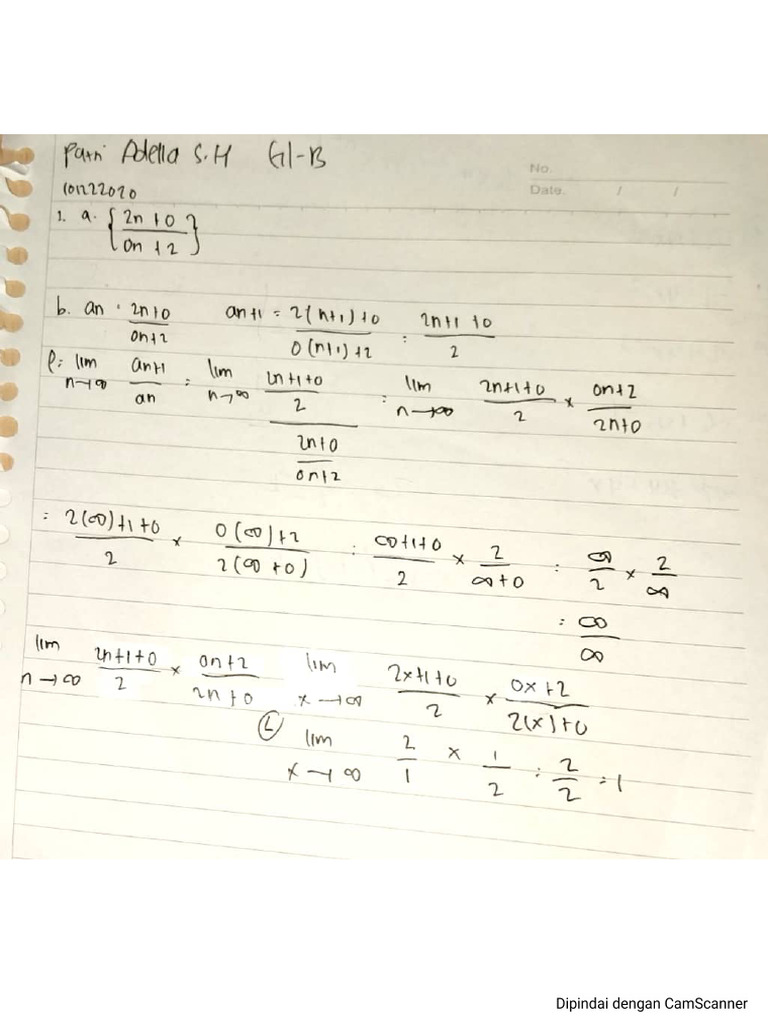 Putri Adella S.H GI-B
No.
10122020
Date. / /
1. a. { (2n + 0)/(0n + 2) }
b. an = (2n+0)/(0n+2) an+1 = (2(n+1)+0)/(0(n+1)+2) = (2n+1+0)/2
ρ = lim n→∞ (an+1)/(an) = lim n→∞ ((2n+1+0)/2)/((2n+0)/(0n+2)) = lim n→∞ (2n+1+0)/2 × (0n+2)/(2n+0)
= (2(∞)+1+0)/2 × (0(∞)+2)/(2(∞+0)) = (∞+1+0)/2 × 2/(∞+0) = ∞/2 × 2/∞
= ∞/∞
lim n→∞ (2n+1+0)/2 × (0n+2)/(2n+0) lim x→∞ (2x+1+0)/2 × (0x+2)/(2(x)+0)
(L) lim x→∞ 2/1 × 1/2 = 2/2 = 1
Dipindai dengan CamScanner